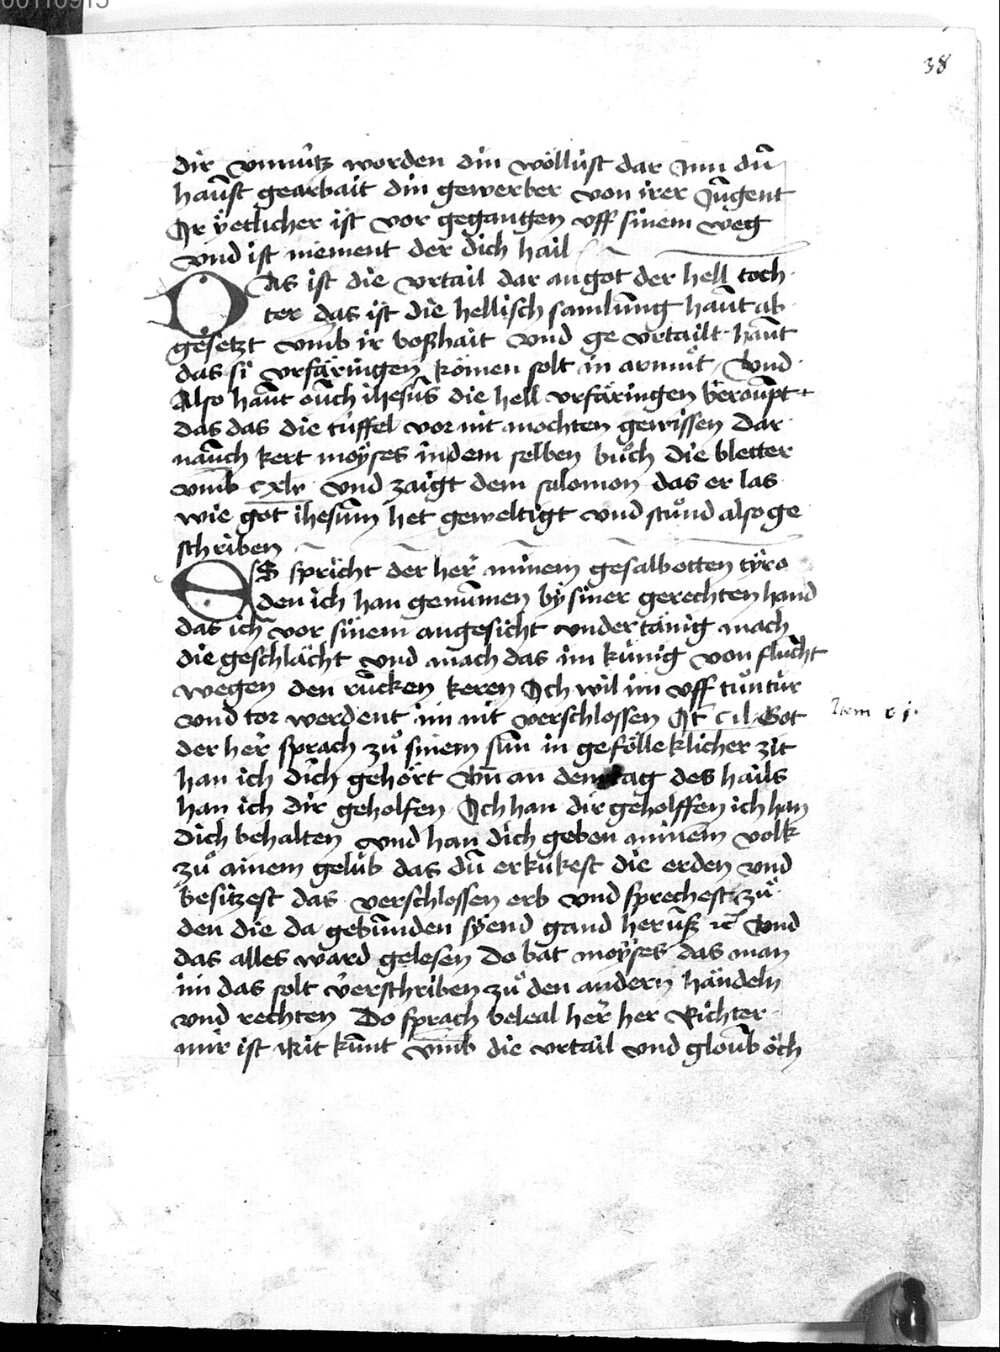 00110915
38
dir vnnutz worden din wöllust dar Inn du
haust gearbait din gewerber von irer Jugent
Ir yetlicher ist vor gegangen vff sinem weg
vnd ist niement der dich hail
Das ist die vrtail dar an got der hell toch
ter das ist die hellisch samlung haut ab
gesetzt vmb ir boßhait vnd ge vrtailt haut
das si vrfäringen kömen solt in armuͦt Vnd
Also haut ouch ihesus die hell vrfäringen beroupt
das das die tüffel vor nit mochten gewissen Dar
nauch kert moyses in dem selben buͦch die bletter
vmb cxlv vnd zaigt dem salomon das er las
wie got ihesum het geweltigt vnd stuͦnd also ge
schriben
ES spricht der her minem gesalbotten tyro
den ich han genumen by siner gerechten hand
das ich vor sinem angesicht vndertänig mach
die geschlächt vnd mach das im künig von flucht
wegen den rucken keren Ich wil im vff tuͦn tür
vnd tor werdent im nit verschlossen It cil Got
der her sprach zuͦ sinem sun in gefölleklicher zit
han ich dich gehört Vn an dem tag des hails
han ich dir geholfen Ich han dir geholffen ich han
dich behalten vnd han dich geben minem volk
zuͦ ainem gelüb das du erkükest die erden vnd
besitzest das verschlossen erb vnd sprechest zuͦ
den die da gebunden syend gand heruß ꝛc Vnd
das alles ward gelesen Do bat moyses das man
im das solt verschriben zuͦ den andern händeln
vnd rechten Do sprach beleal her her Richter
mir ist nit kunt vmb die vrtail vnd gloub öch